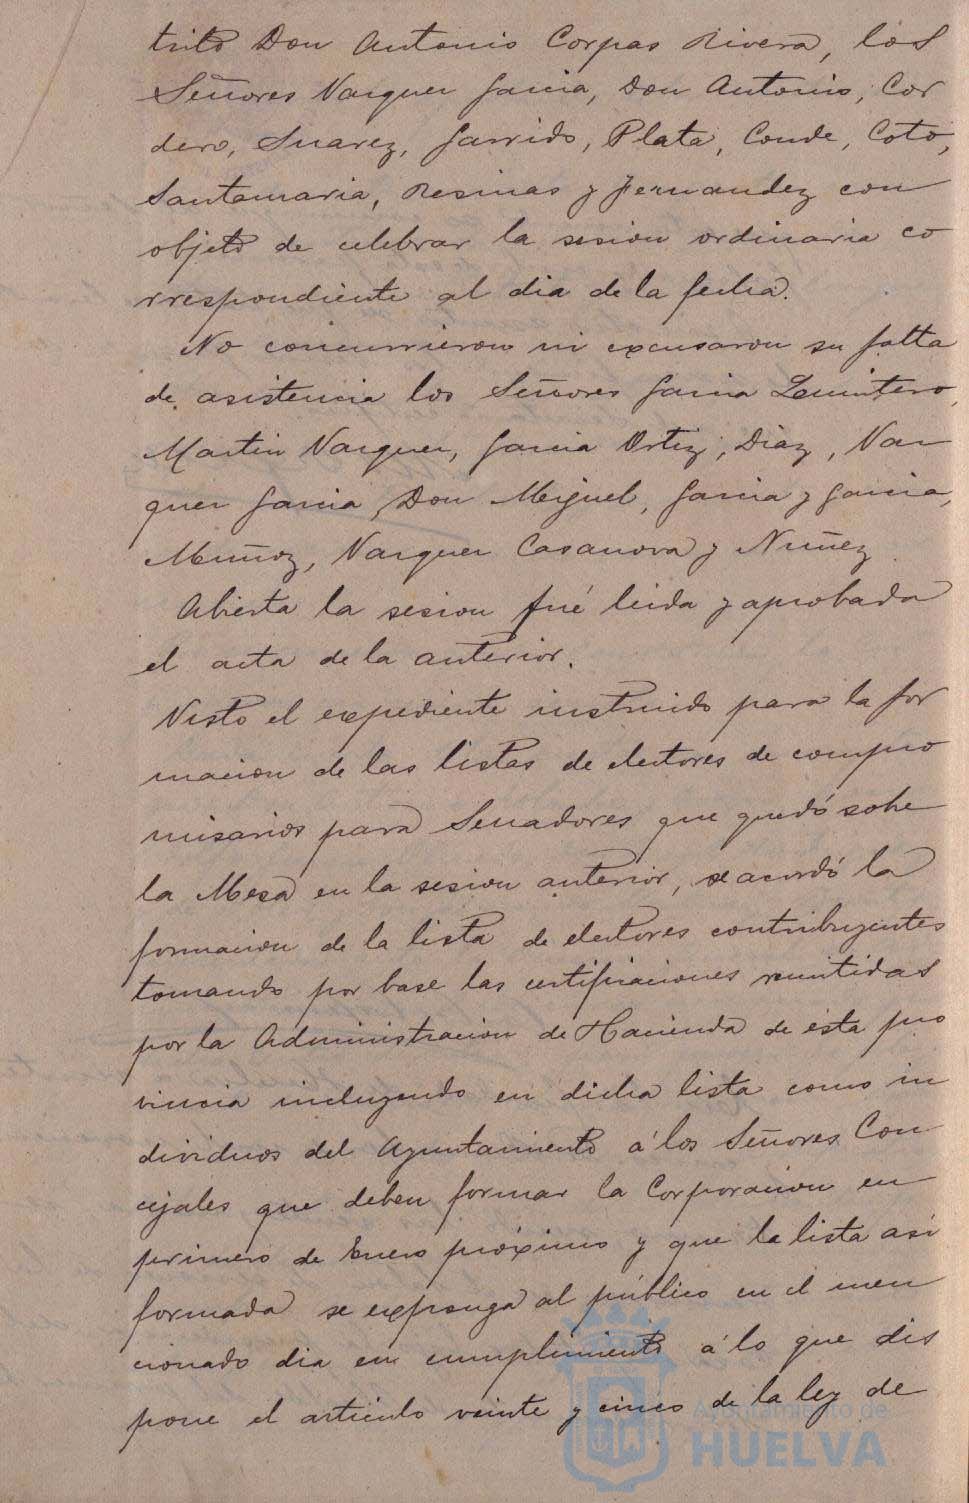 trito Don Antonio Corpas Rivera, los
Señores Vazquez Garcia, Don Antonio, Cor
dero, Suarez, Garrido, Plata, Conde, Coto,
Santamaria, Resinas y Fernandez con
objeto de celebrar la sesion ordinaria co
rrespondiente al dia de la fecha.
No concurrieron ni excusaron su falta
de asistencia los Señores Garcia Quintero,
Martin Vazquez, Garcia Ortiz, Diaz, Vaz
quez Garcia, Don Miguel, Garcia y Garcia,
Muñoz, Vazquez Casanova y Nuñez
Abierta la sesion fué leida y aprobada
el acta de la anterior.
Visto el expediente instruido para la for
macion de las listas de electores de compro
misarios para Senadores que quedó sobre
la Mesa en la sesion anterior, se acordó la
formacion de la lista de electores contribuyentes
tomando por base las certificaciones remitidas
por la Administracion de Hacienda de esta pro
vincia incluyendo en dicha lista como in
dividuos del Ayuntamiento á los Señores Con
cejales que deben formar la Corporacion en
primero de Enero próximo y que la lista así
formada se exponga al público en el men
cionado dia en cumplimiento á lo que dis
pone el articulo veinte y cinco de la ley de
Ayuntamiento de
HUELVA